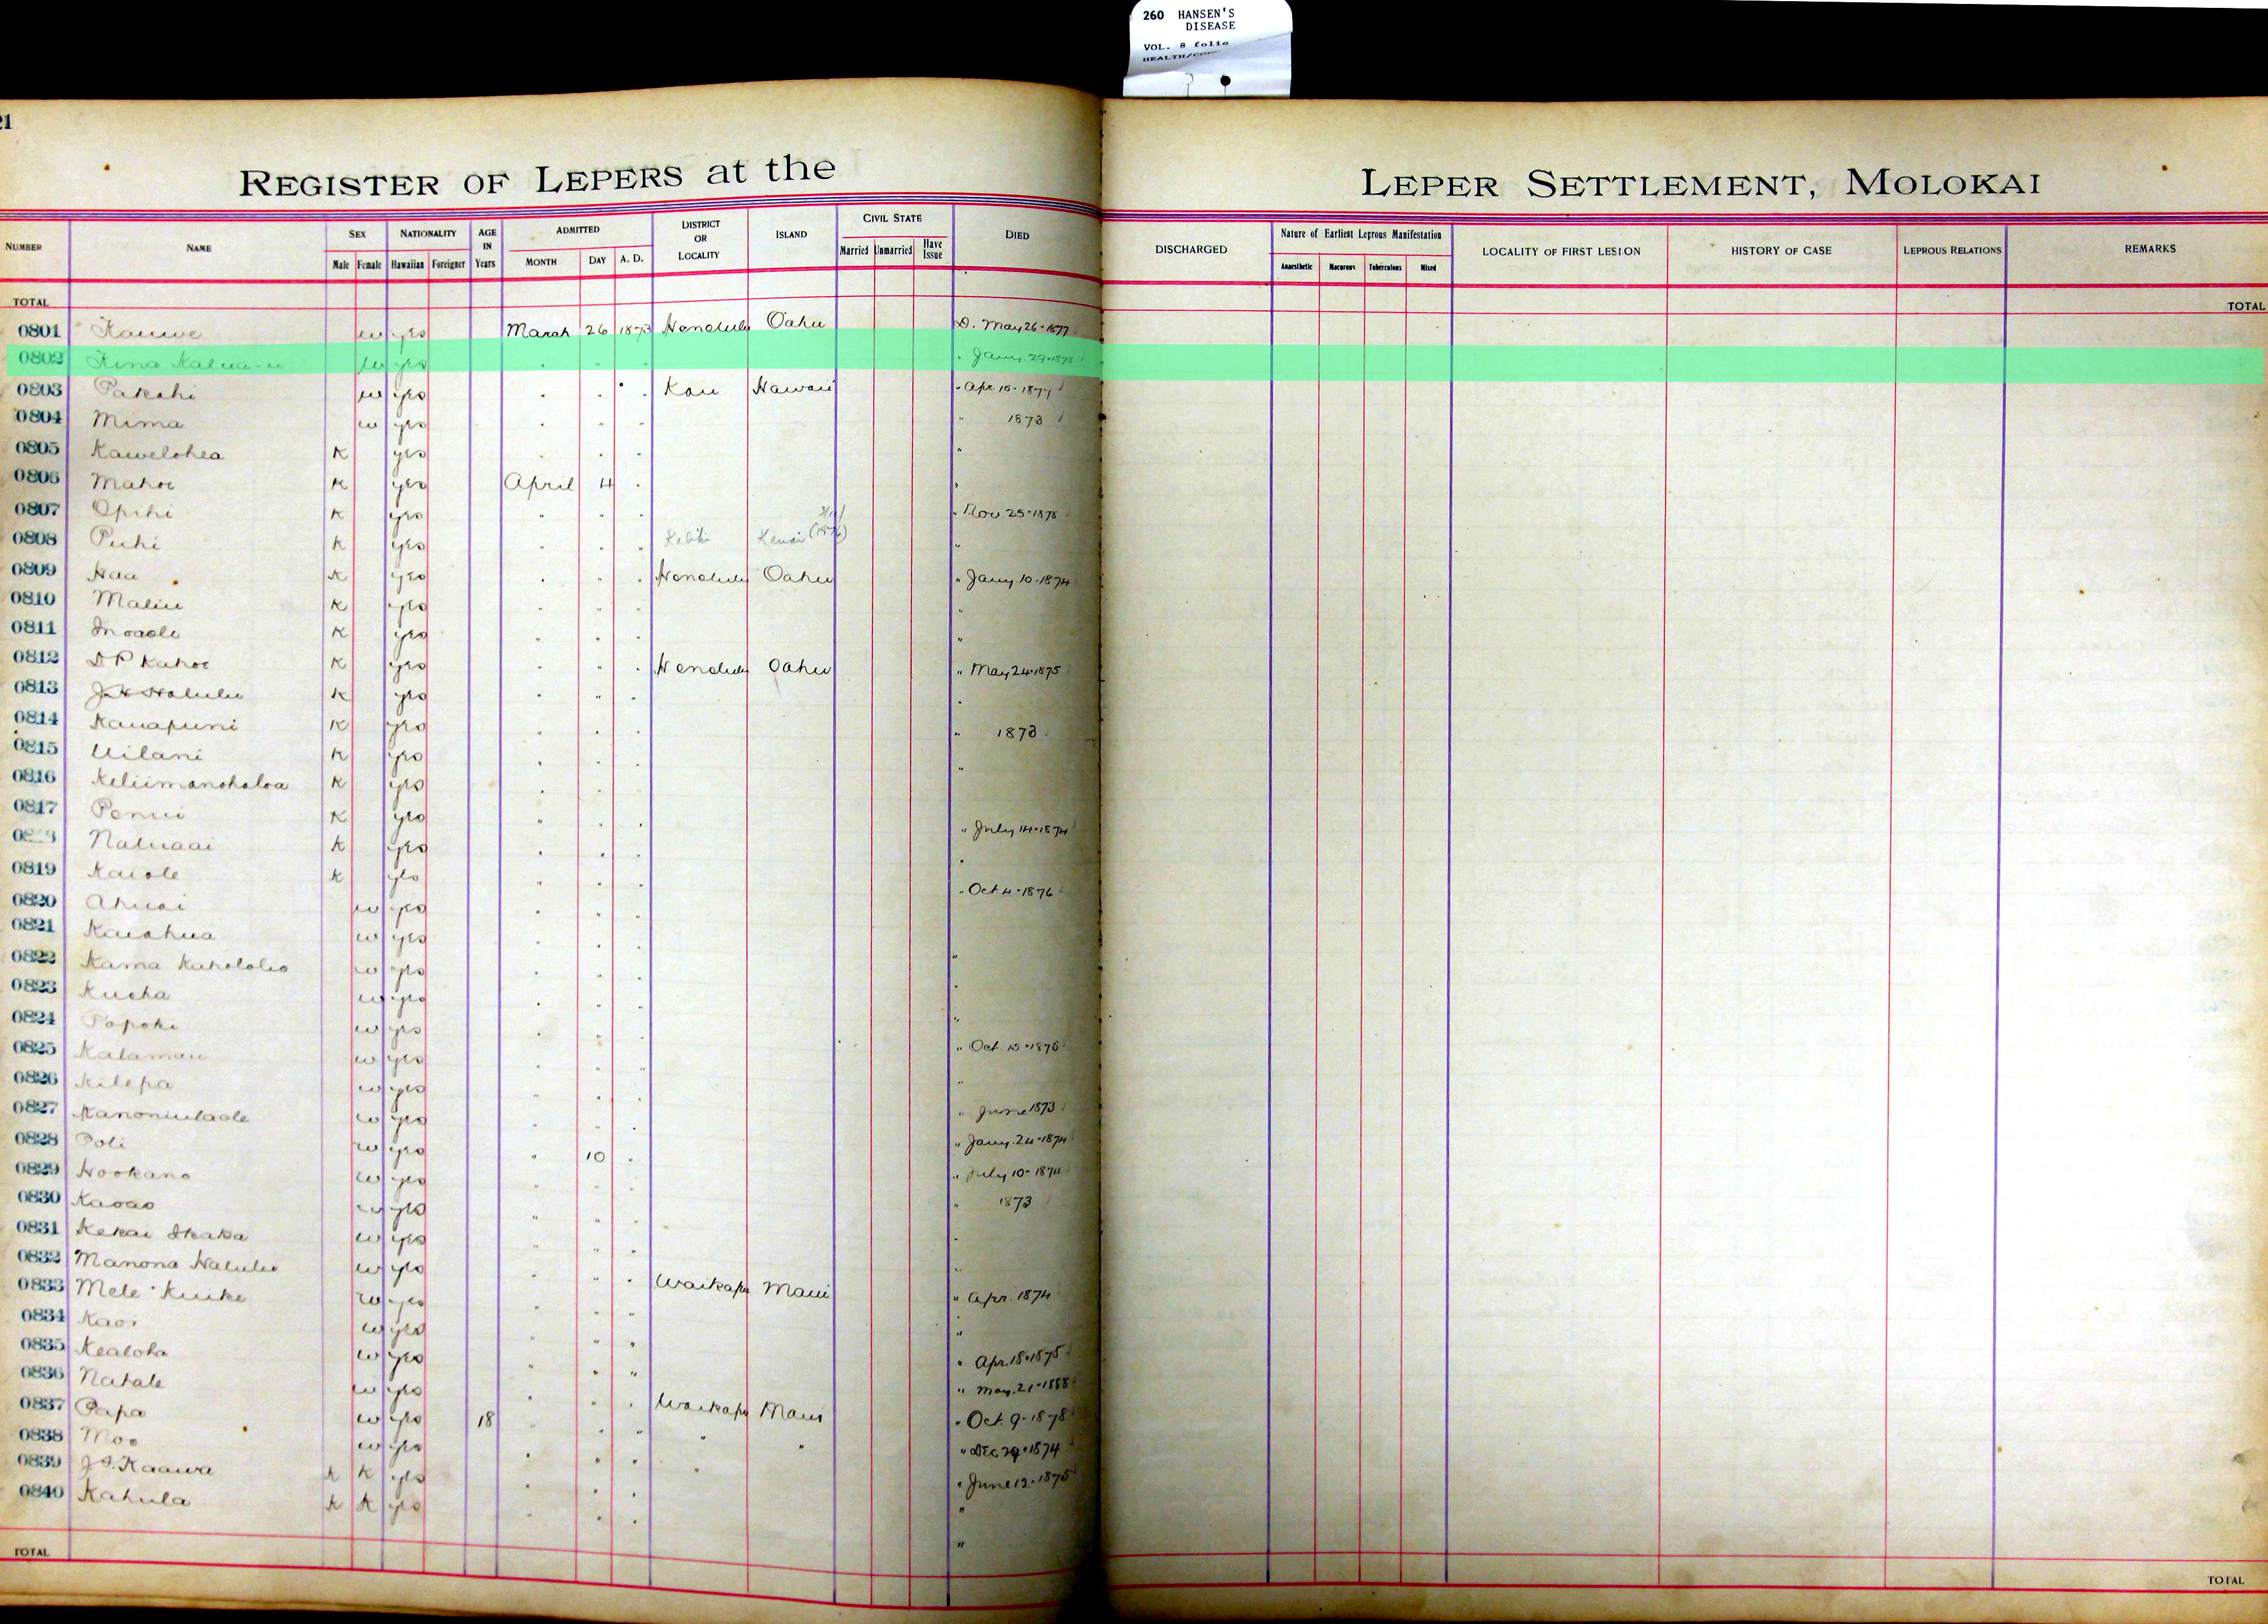 260 HANSEN'S
DISEASE
VOL. 8 folio
21
REGISTER OF LEPERS at the LEPER SETTLEMENT, MOLOKAI
NUMBER NAME SEX NATIONALITY AGE IN Years ADMITTED DISTRICT OR LOCALITY ISLAND CIVIL STATE DIED DISCHARGED Nature of Earliest Leprous Manifestation LOCALITY OF FIRST LESION HISTORY OF CASE LEPROUS RELATIONS REMARKS
Male Female Hawaiian Foreigner MONTH DAY A. D. Married Unmarried Have Issue Anaesthetic Macurous Tuberculous Mixed
TOTAL TOTAL
0801 Kauwe w yes March 26 1873 Honolulu Oahu D. May 26-1877
0802 w yes " " " " Jany. 29-1878
0803 Pakahi w yes " " " Kau Hawaii " Apr 10-1877
0804 Mima w yes " " " " 1873
0805 Kawelohea K yes " " " "
0806 Mahoe K yes April 4 " "
0807 Opihi K yes " " " " Nov 25-1878
0808 Puhi K yes " " " Kauai "
0809 Haa K yes " " " Honolulu Oahu " Jany 10-1874
0810 Maliu K yes " " " "
0811 K yes " " " "
0812 D P Kahoe K yes " " " Honolulu Oahu " May 24-1875
0813 J H Halulu K yes " " " "
0814 Kauapuni K yes " " " " 1873
0815 Uilani K yes " " " "
0816 Keliimanohaloa K yes " " "
0817 K yes " " " " July 14-1874
Naluaai K yes " " " "
0819 Kaiole K yes " " " " Oct 4-1876
0820 Ahuai w yes " " "
0821 Kaiahua w yes " " " "
0822 Kama Kahololio w yes " " " "
0823 Kueha w yes " " " "
0824 Popoki w yes " " " " Oct. 15-1878
0825 Kalamau w yes " " " "
0826 Kilepa w yes " " " " June 1873
0827 Kanoniulaole w yes " " " " Jany. 24-1874
0828 Poli w yes " 10 " " July 10-1874
0829 Hookano w yes " " " " 1873
0830 Kaoao w yes " " " "
0831 Kekai w yes " " " "
0832 Manona Halulu w yes " " " Waikapu Maui " Apr. 1874
0833 Mele Kuike w yes " " " "
0834 Kaoi w yes " " " " Apr. 18-1875
0835 Kealoha w yes " " " " May. 21-1888
0836 Nahale w yes " " " Waikapu Maui " Oct. 9-1878
0837 Papa w yes 18 " " " " " " Dec. 29-1874
0838 Moo w yes " " " " " June 12-1875
0839 Kaawa K K yes " " " "
0840 Kahula K K yes " " " "
TOTAL TOTAL